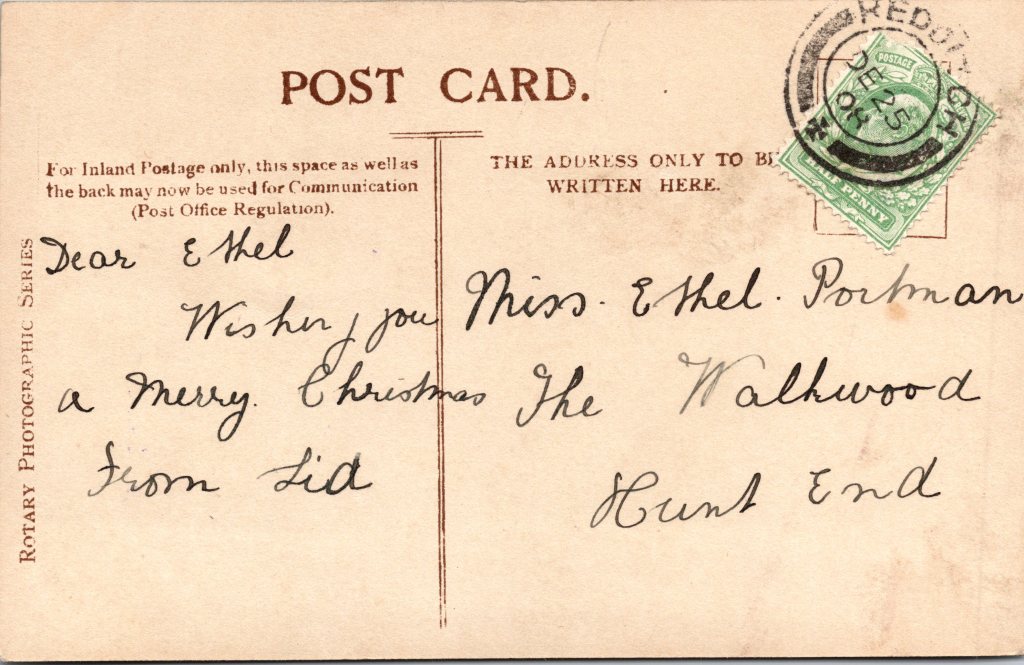 POST CARD.
For Inland Postage only, this space as well as
the back may now be used for Communication
(Post Office Regulation).
THE ADDRESS ONLY TO BE
WRITTEN HERE.
REDDITCH
DE 25
08
POSTAGE
HALF PENNY
ROTARY PHOTOGRAPHIC SERIES
Dear Ethel
Wishing you
a Merry. Christmas
From Sid
Miss. Ethel. Portman
The Walkwood
Hunt End